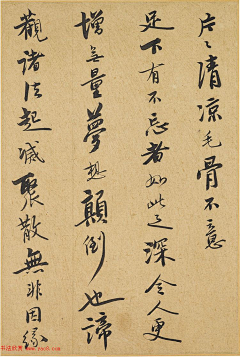 片〻清凉毛骨不意
足下有不忘者如此之深令人更
增無量夢想顛倒也諦
觀諸法起滅聚散無非因緣